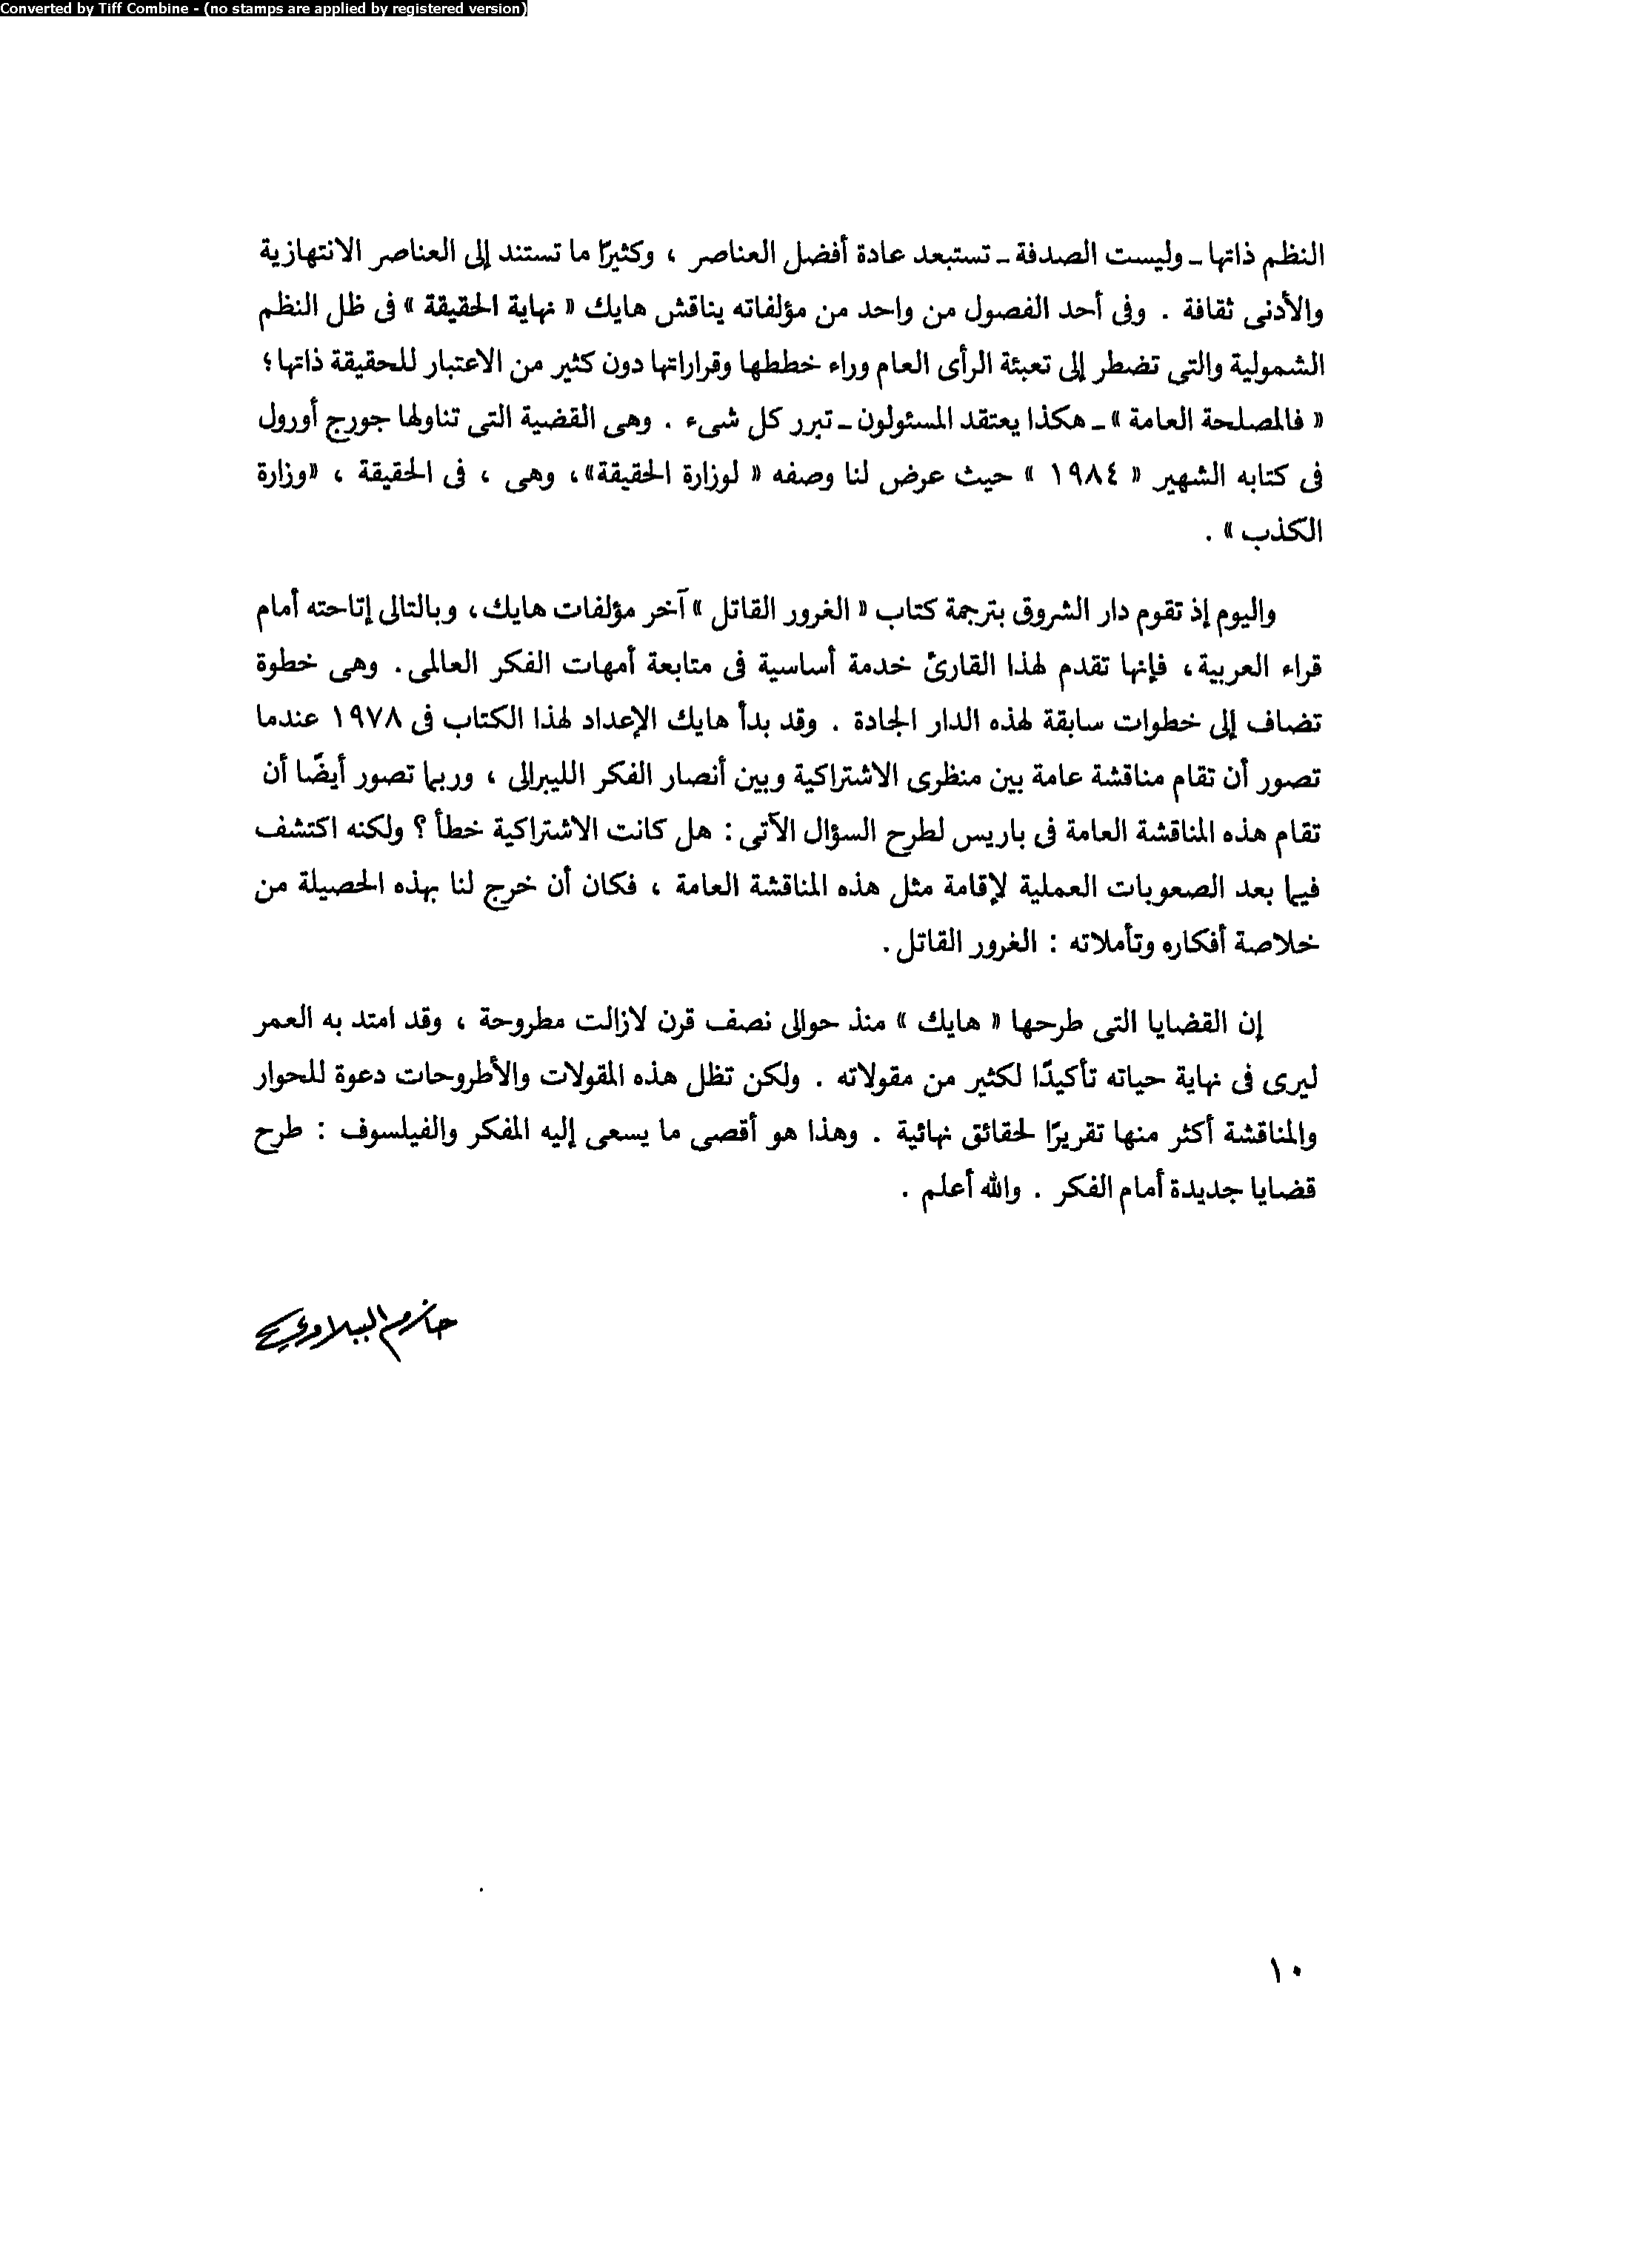 Converted by Tiff Combine - (no stamps are applied by registered version)
النظم ذاتها ـ وليست الصدفة ـ تستبعد عادة أفضل العناصر ، وكثيرًا ما تستند إلى العناصر الانتهازية
والأدنى ثقافة . وفى أحد الفصول من واحد من مؤلفاته يناقش هايك « نهاية الحقيقة » فى ظل النظم
الشمولية والتى تضطر إلى تعبئة الرأى العام وراء خططها وقراراتها دون كثير من الاعتبار للحقيقة ذاتها ؛
« فالمصلحة العامة » ـ هكذا يعتقد المسئولون ـ تبرر كل شىء . وهى القضية التى تناولها جورج أورول
فى كتابه الشهير « ١٩٨٤ » حيث عرض لنا وصفه « لوزارة الحقيقة» ، وهى ، فى الحقيقة ، «وزارة
الكذب » .
واليوم إذ تقوم دار الشروق بترجمة كتاب « الغرور القاتل » آخر مؤلفات هايك ، وبالتالى إتاحته أمام
قراء العربية ، فإنها تقدم لهذا القارئ خدمة أساسية فى متابعة أمهات الفكر العالمى . وهى خطوة
تضاف إلى خطوات سابقة لهذه الدار الجادة . وقد بدأ هايك الإعداد لهذا الكتاب فى ١٩٧٨ عندما
تصور أن تقام مناقشة عامة بين منظرى الاشتراكية وبين أنصار الفكر الليبرالى ، وربما تصور أيضًا أن
تقام هذه المناقشة العامة فى باريس لطرح السؤال الآتى : هل كانت الاشتراكية خطأ ؟ ولكنه اكتشف
فيما بعد الصعوبات العملية لإقامة مثل هذه المناقشة العامة ، فكان أن خرج لنا بهذه الحصيلة من
خلاصة أفكاره وتأملاته : الغرور القاتل .
إن القضايا التى طرحها « هايك » منذ حوالى نصف قرن لازالت مطروحة ، وقد امتد به العمر
ليرى فى نهاية حياته تأكيدًا لكثير من مقولاته . ولكن تظل هذه المقولات والأطروحات دعوة للحوار
والمناقشة أكثر منها تقريرًا لحقائق نهائية . وهذا هو أقصى ما يسعى إليه المفكر والفيلسوف : طرح
قضايا جديدة أمام الفكر . والله أعلم .
حازم الببلاوى
١٠